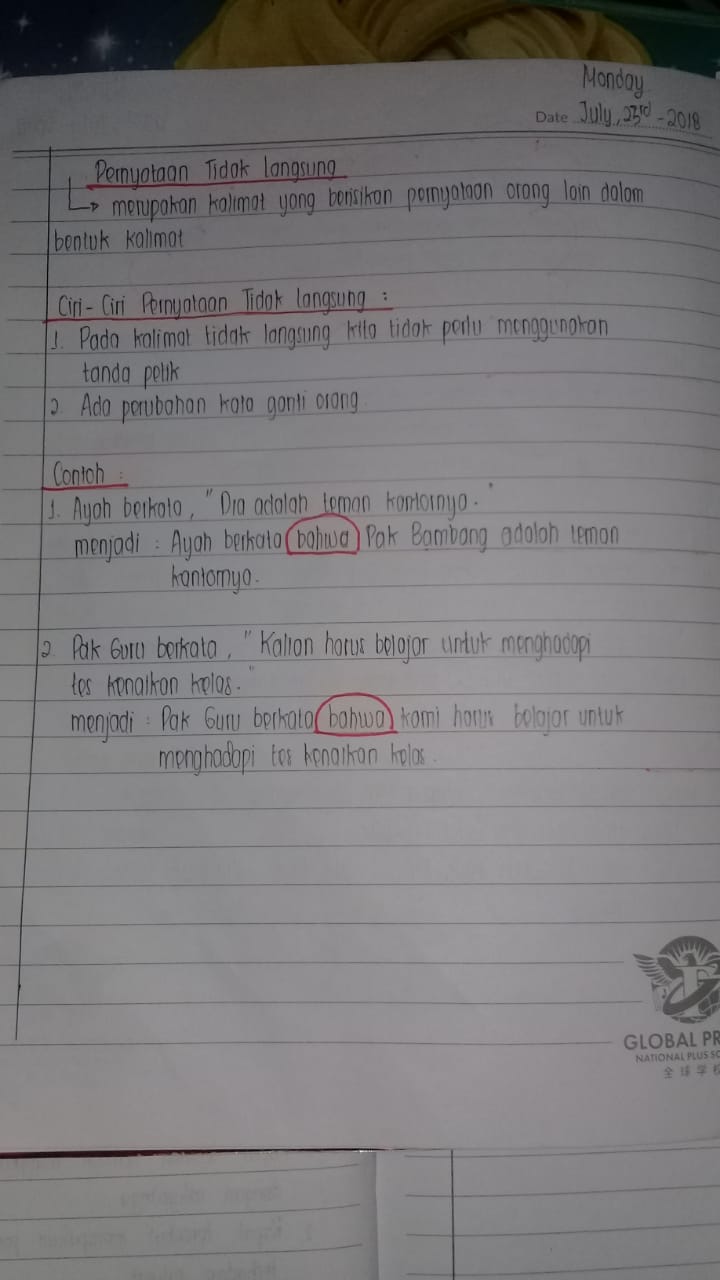 Monday
Date July, 23rd - 2018
Pernyataan Tidak langsung
merupakan kalimat yang berisikan pernyataan orang lain dalam
bentuk kalimat
Ciri - Ciri Pernyataan Tidak langsung :
1. Pada kalimat tidak langsung kita tidak perlu menggunakan
tanda petik
2. Ada perubahan kata ganti orang
Contoh :
1. Ayah berkata, "Dia adalah teman kantornya."
menjadi : Ayah berkata bahwa Pak Bambang adalah teman
kantornya.
2. Pak Guru berkata, "Kalian harus belajar untuk menghadapi
tes kenaikan kelas."
menjadi : Pak Guru berkata bahwa kami harus belajar untuk
menghadapi tes kenaikan kelas.
GLOBAL PR
NATIONAL PLUS SC
全球学校